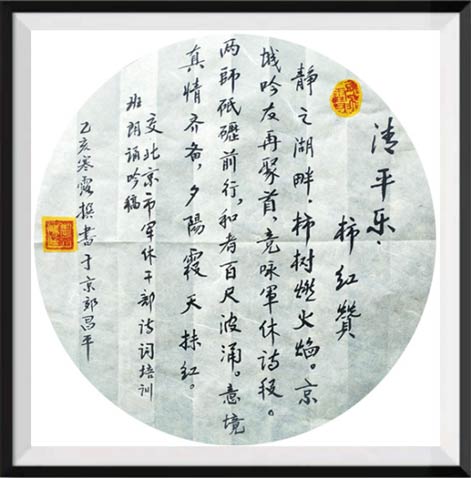 清平乐·
柿红赞
静之湖畔,柿树燃火焰。京
城吟友再聚首,竞咏軍休诗段。
两师砥砺前行,和者百尺波涌。意境
真情齐备,夕陽霞天抹红。
交北京市军休干部诗词培训
班朗诵吟稿
己亥寒露撰書于京郊昌平